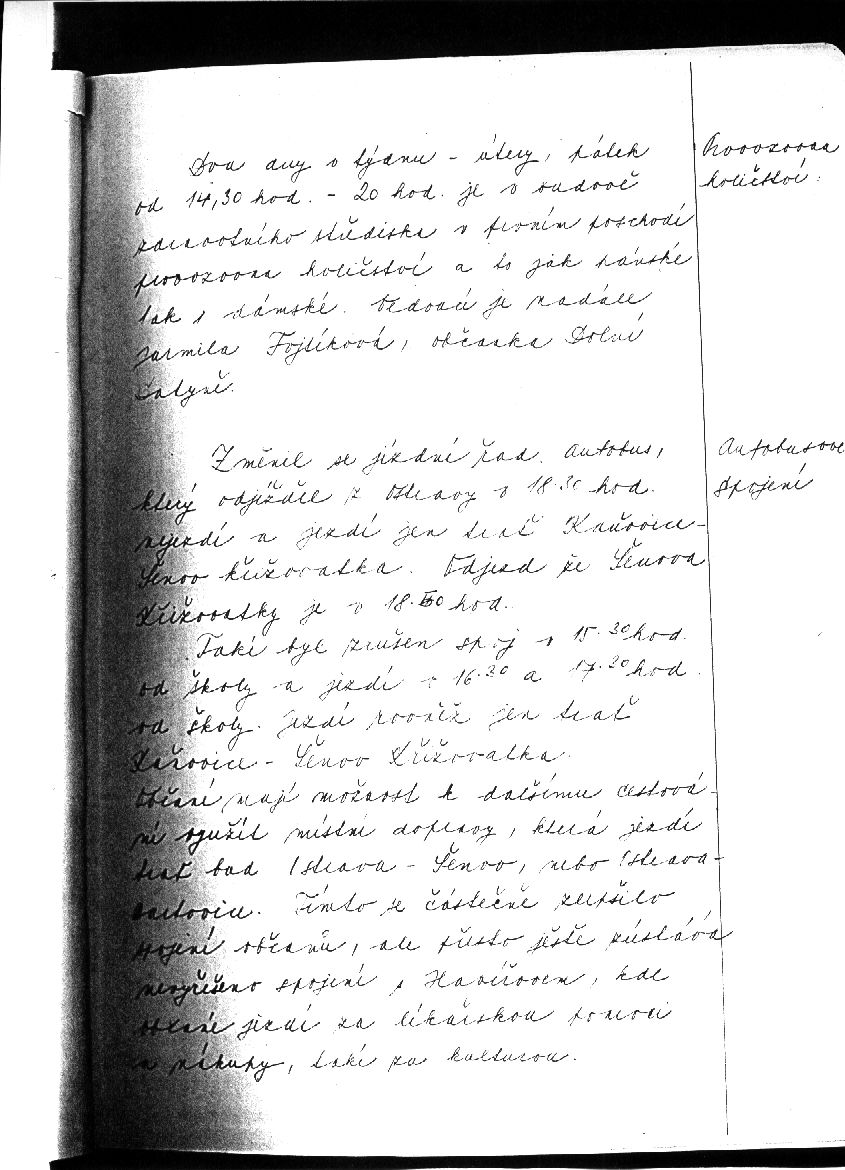 Dva dny v týdnu - úterý, pátek
od 14,30 hod. - 20 hod. je v budově
zdravotního střediska v prvním poschodí
provozovna holičství a to jak pánské
tak i dámské. Vedoucí je nadále
Jarmila Fojtíková, občanka Dolní
Datyně.
Provozovna
holičství.
Změnil se jízdní řád. Autobus,
který odjížděl z Ostravy v 18.30 hod.
nejezdí a jezdí jen trať Kaňovice-
Šenov křižovatka. Odjezd ze Šenova
Křižovatky je v hod.
Také byl zrušen spoj v 15.30 hod.
od školy a jezdí v 16.30 a 17.30 hod.
od školy. Jezdí rovněž jen trať
Kaňovice - Šenov Křižovatka.
Občané mají možnost k dalšímu cestová-
ní využít místní dopravy, která jezdí
trať buď Ostrava - Šenov, nebo Ostrava-
Bartovice. Tímto se částečně zlepšilo
spojení občanů, ale přesto ještě zůstává
nevyřešeno spojení s Havířovem, kde
občané jezdí za lékařskou pomocí
a nákupy, také za kulturou.
Autobusové
spojení